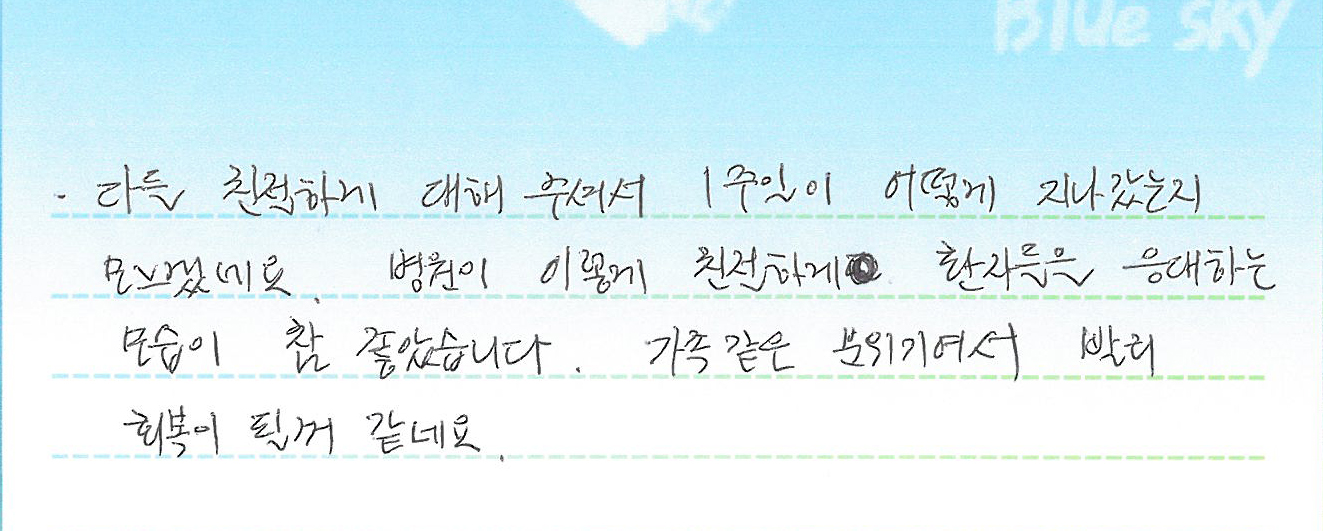 Blue sky
. 다들 친절하게 대해 주셔서 1주일이 어떻게 지나갔는지
모르겠네요. 병원이 이렇게 친절하게 환자들을 응대하는
모습이 참 좋았습니다. 가족같은 분위기여서 빨리
회복이 될꺼 같네요.